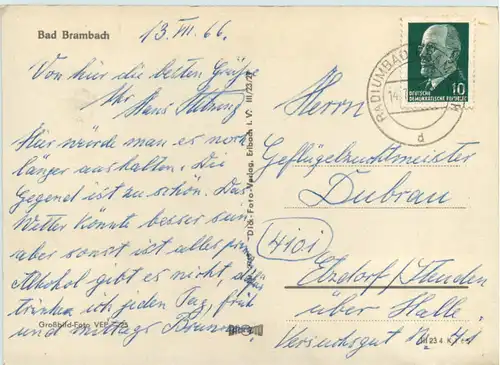 Bad Brambach
13. VII. 66.
Von hier die besten Grüße
Ihr Hans
Hier würde man es noch
länger aushalten. Die
Gegend ist zu schön. Das
Wetter könnte besser sein
aber sonst ist alles prima
Alkohol gibt es nicht, dafür
trinke ich jeden Tag, früh
und mittags Brunnen
Großbild-Foto VEB
Dick-Foto-Verlag, Erlbach i. V. III/23/27
RADIUMBAD
14.
d
DEUTSCHE
DEMOKRATISCHE REPUBLIK
10
Herrn
Geflügelzuchtmeister
Dubrau
4101
Etzdorf/Steuden
über Halle
Versuchsgut